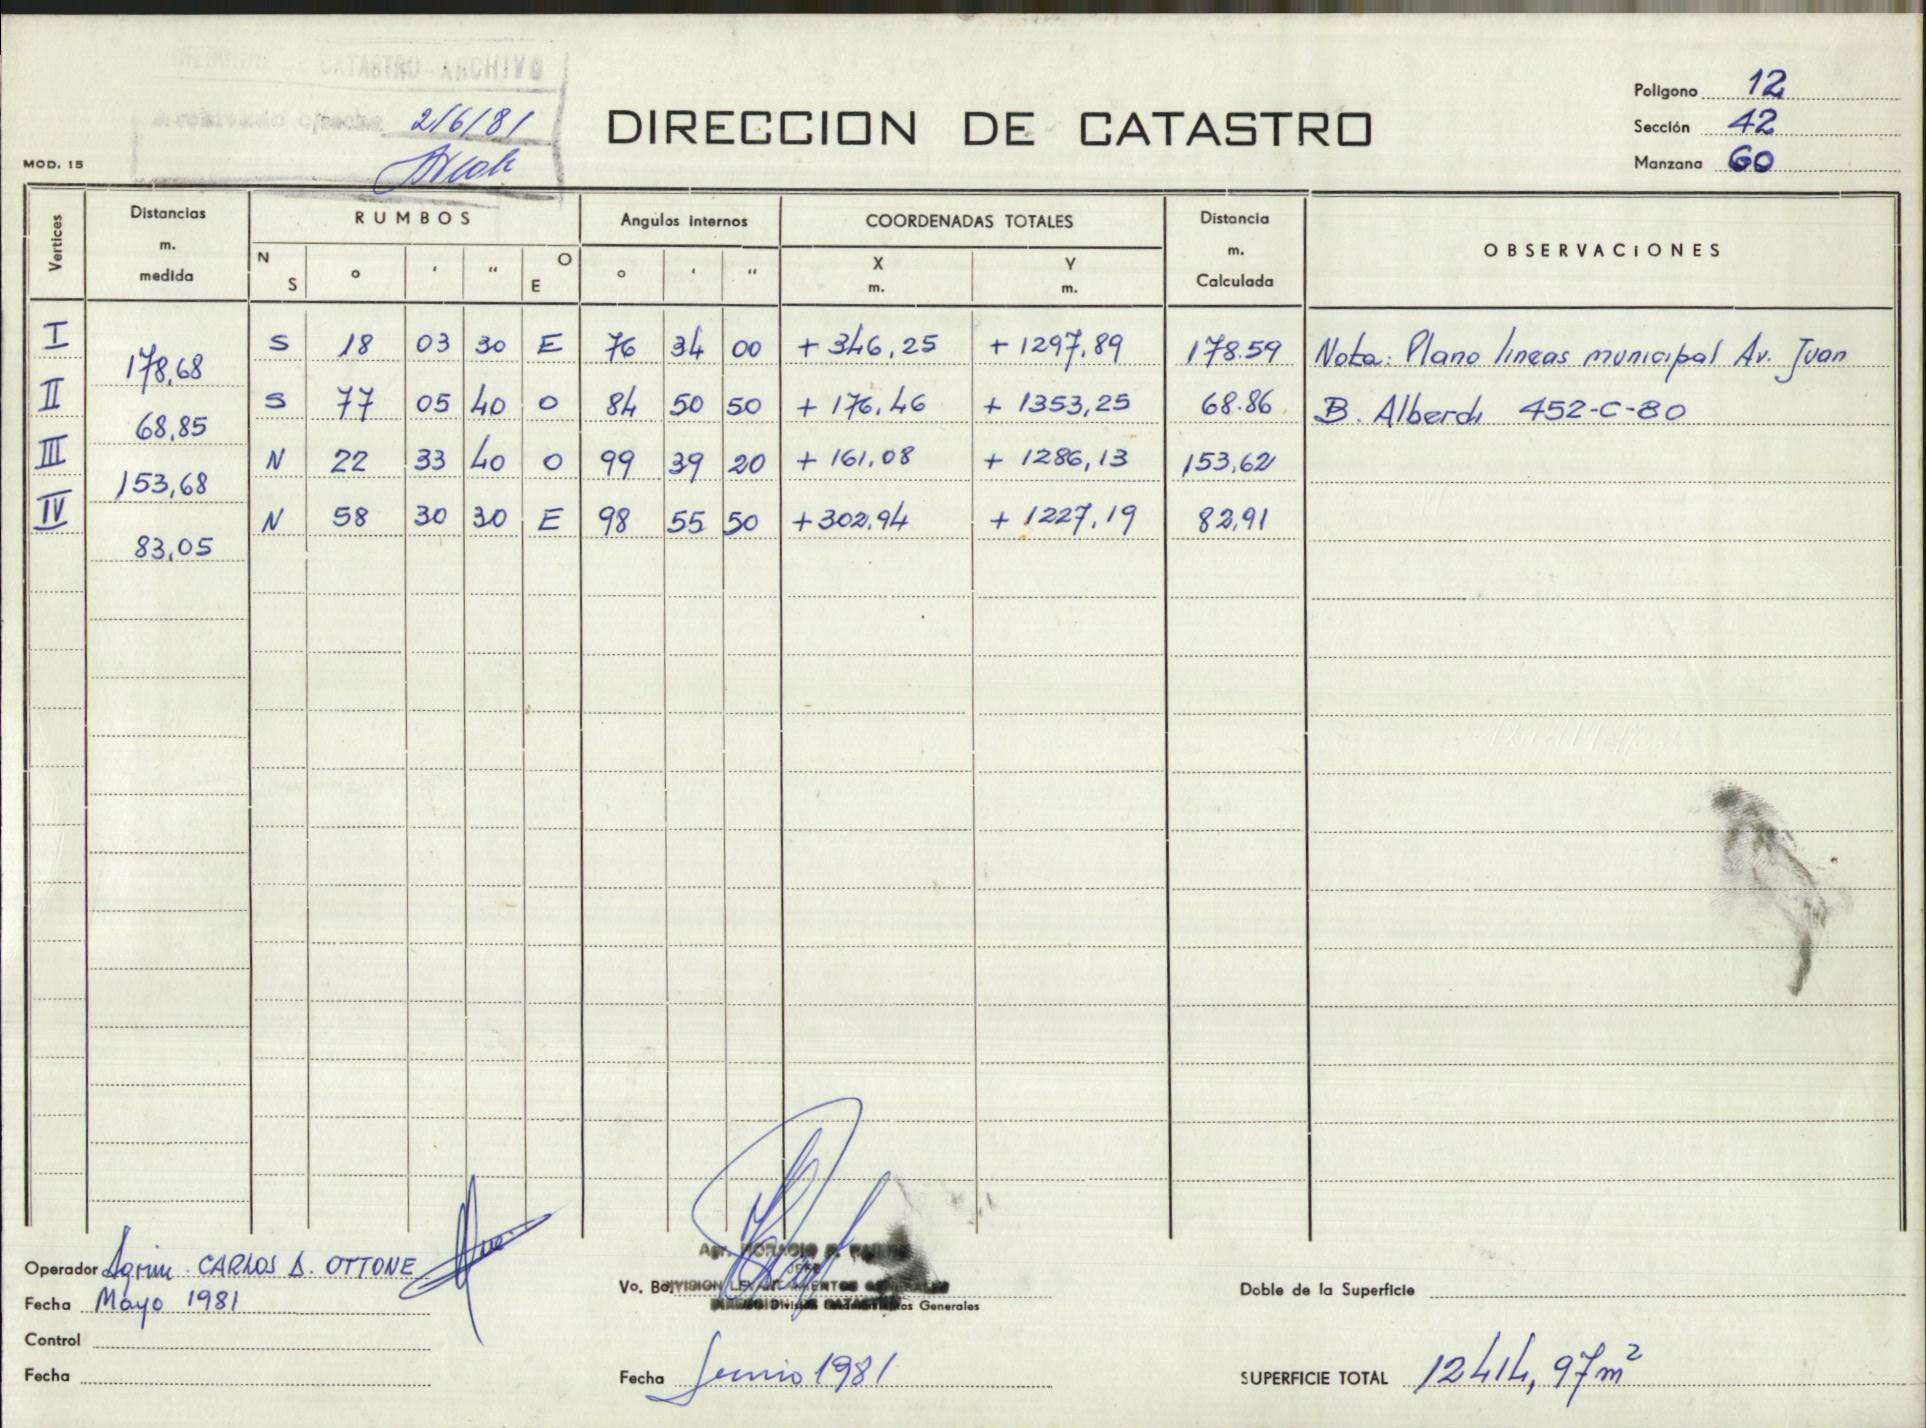 DE CATASTRO - ARCHIVO
Archivado c/fecha 2/6/81
DIRECCION DE CATASTRO
MOD. 15
Poligono 12
Sección 42
Manzana 60
Vertices Distancias m. medida RUMBOS Angulos internos COORDENADAS TOTALES Distancia m. Calculada OBSERVACIONES
N S ° ' " O E ° ' " X m. Y m.
I S 18 03 30 E 76 34 00 + 346,25 + 1297,89 178.59 Nota: Plano lineas municipal Av. Juan
178,68
II S 77 05 40 O 84 50 50 + 176,46 + 1353,25 68.86 B. Alberdi 452-C-80
68,85
III N 22 33 40 O 99 39 20 + 161,08 + 1286,13 153,62
153,68
IV N 58 30 30 E 98 55 50 + 302,94 + 1227,19 82,91
83,05
Operador Agrim. CARLOS A. OTTONE
Fecha Mayo 1981
Control
Fecha
Agr. HORACIO
JEFE
Vo. Bo. DIVISION LEVANTAMIENTOS GENERALES
Generales
Fecha Junio 1981
Doble de la Superficie
SUPERFICIE TOTAL 12414,97 m²